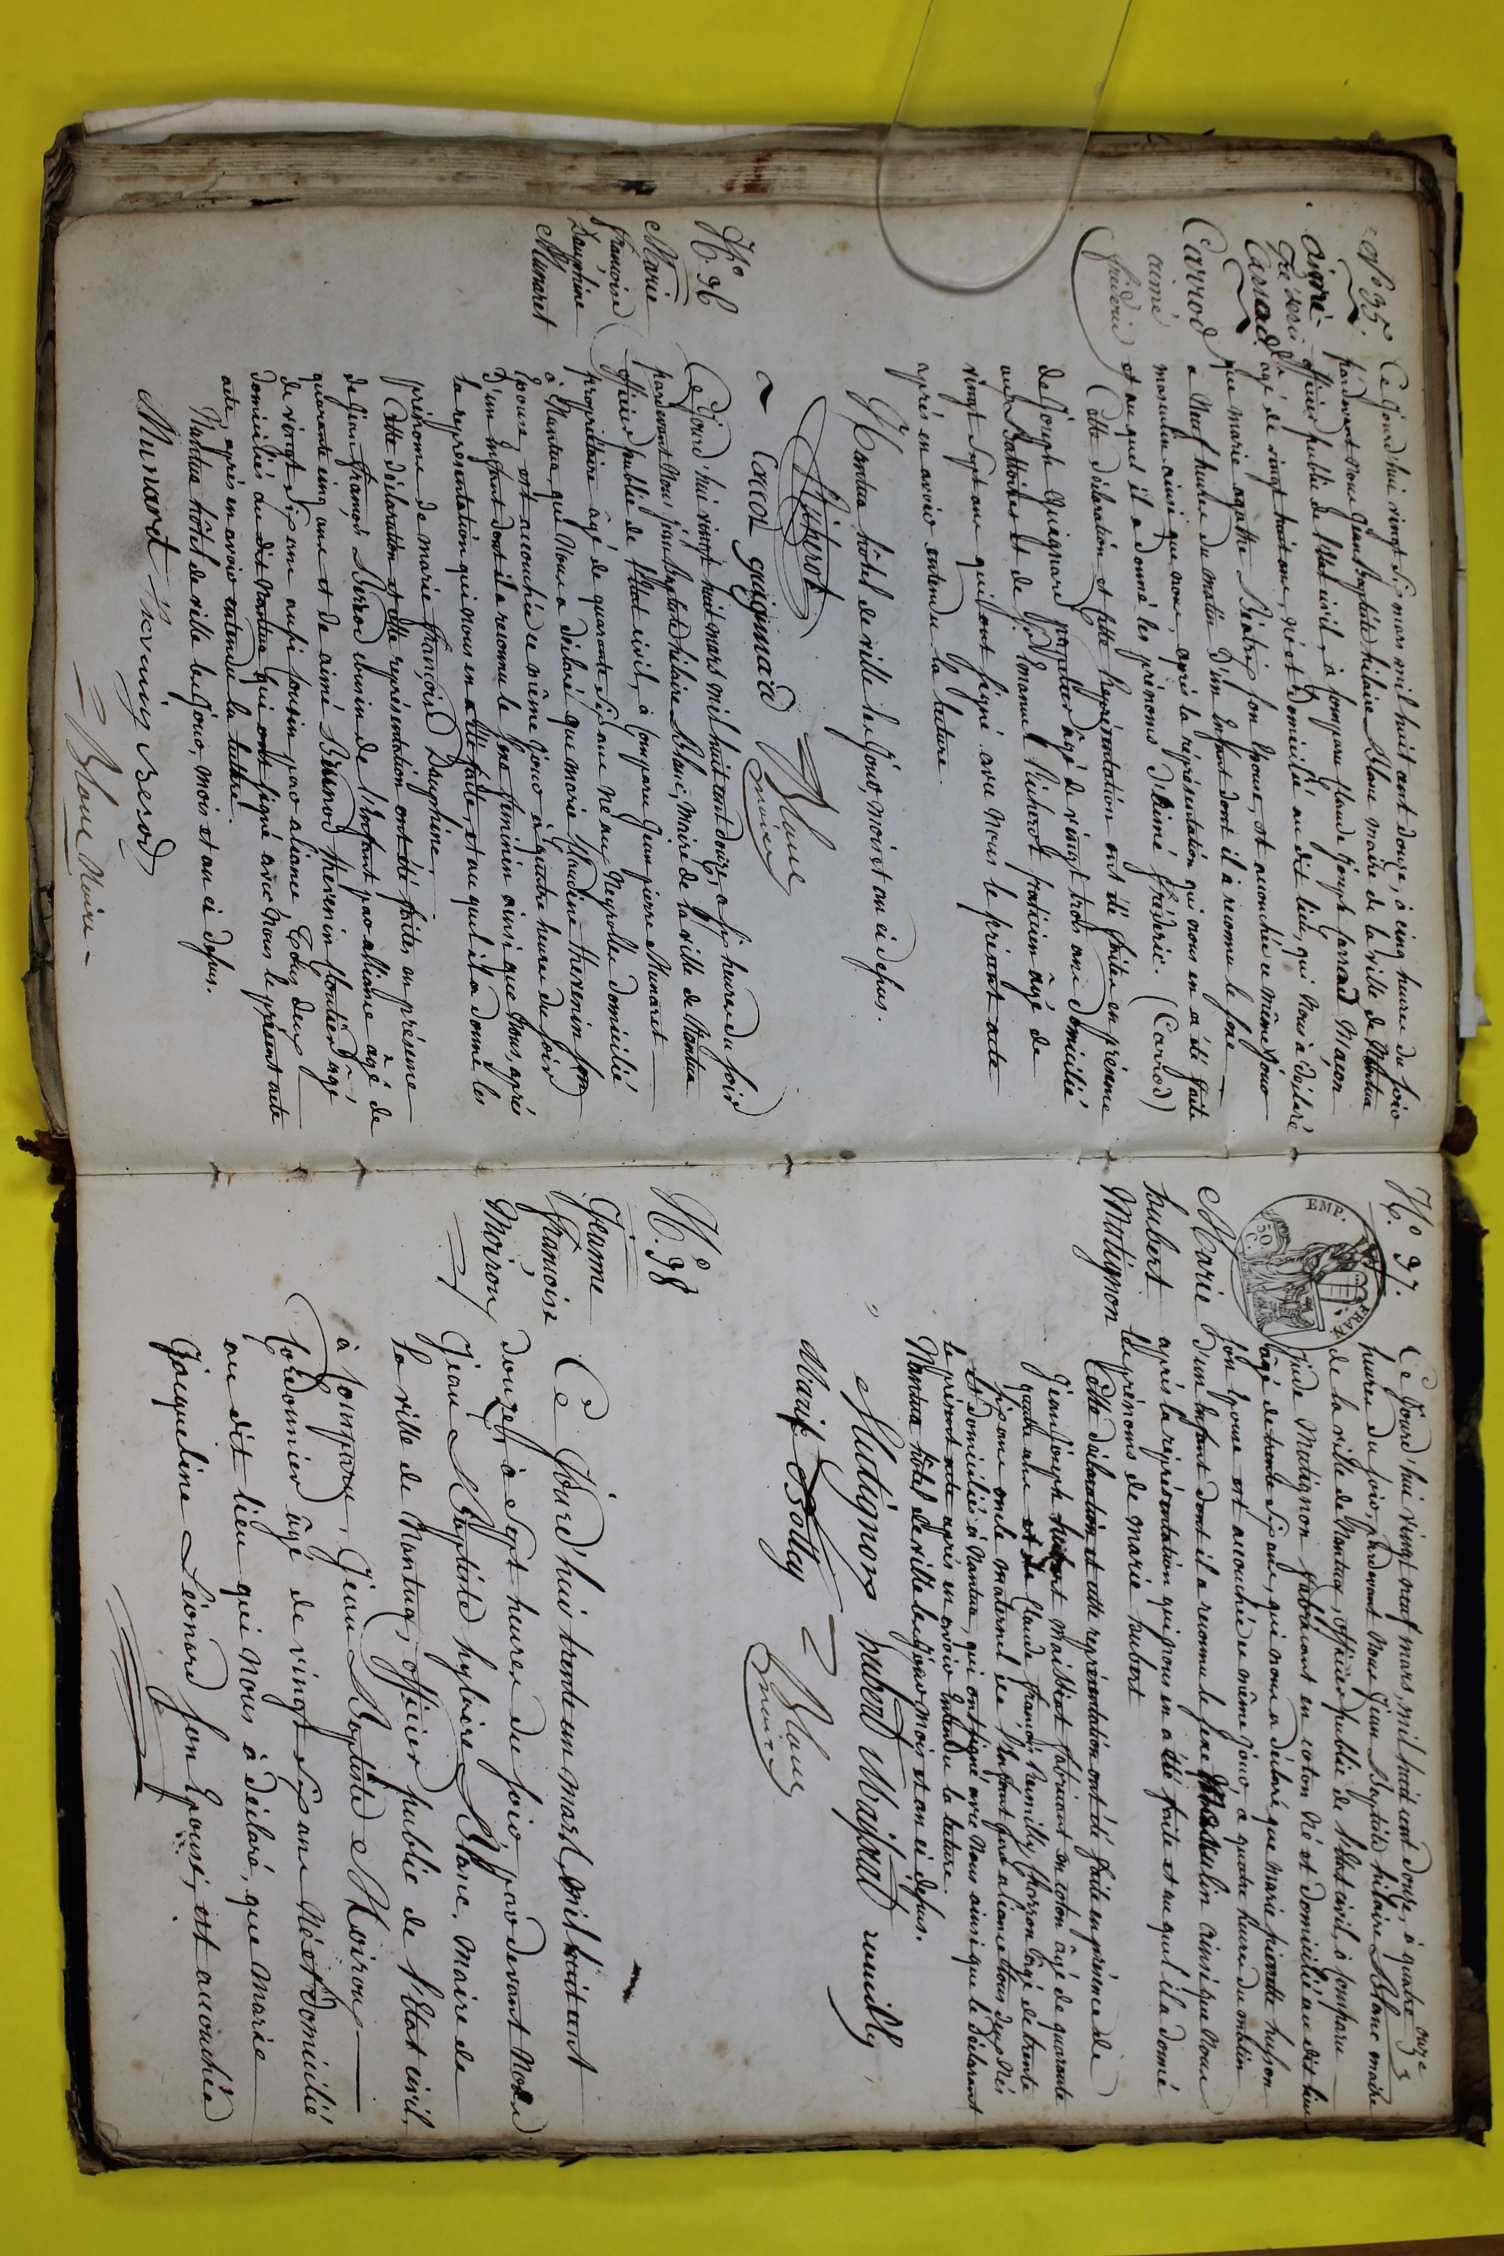 N° 35.
aimé
fréderic
Carrod
Carrod
aimé
fréderic
Cejourd'hui vingt six mars mil huit cent douze, à cinq heures du soir
pardevant nous Jean Baptiste hilaire Blanc maire de la ville de Nantua
officier public de l'état civil, à comparu Claude Joseph Carrod Maçon
agé de vingt huit ans, né et domicilié au dit lieu, qui nous à déclaré
que marie agathe Béatrix son Epouse, est accouchée ce même jour
a Neuf heures du matin D'un Enfant dont il a reconnu le sexe
masculin ainsi que nous, après la réprésentation qui nous en a été faite
et auquel il a donné les prénoms D'Aimé fréderic. (Carrod)
Cette déclaration et cette Réprésentation ont été faites en présence
de Joseph Guignard âgé de vingt trois ans domicilié
aux Battoires et de Emanuel Picherot praticien âgé de
vingt sept ans qui ont signé avec nous le présent acte
après en avoir entendu la lecture.
Nantua hôtel de ville les jour, mois et an ci dessus.
Picherot Blanc
maire
guignard
N° 36
Marie
francoise
Dauphine
Munaret
Cejourd'hui vingt huit mars mil huit cent douze, à six heures du soir
pardevant Nous Jean Baptiste hilaire Blanc, Maire de la ville de Nantua
officier public de l'état civil, à comparu Jean pierre Munaret
propriétaire âgé de quarante six ans né au Neyrolle domicilié
à Nantua qui Nous a déclaré que marie Claudine thevenin son
Epouse, est accouchée ce même jour à quatre heures du soir
D'un enfant dont il a reconnu le sexe féminin ainsi que Nous, après
la representation qui nous en a été faite, et auquel il a donné les
prénoms de marie françoise Dauphine.
Cette déclaration et cette représentation ont été faites en présence
de Jean françois cousin de l'Enfant par alliance âgé de
quarante cinq ans et de aimé thevenin âgé
de vingt six ans aussi cousin par aliance, tous deux
domiciliés au dit Nantua qui ont signé avec Nous le présent acte
acte, après en avoir entendu la lecture.
Nantua hôtel de ville les jour, mois et an ci dessus.
Munaret
Blanc Maire
N° 37.
EMP. FRAN.
50
C.
Marie
hubert
Mutignon
Ce Jourd'hui vingt neuf mars, mil huit cent douze, à quatre onze
heures du soir, pardevant Nous Jean Baptiste hilaire Blanc maire
de la ville de Nantua, officier public de l'état civil, à comparu
Jude Mutignon fabricant en coton Né et domicilié au dit lieu
âgé de trente six ans, qui nous a déclaré que marie hubert
son Epouse est accouchée ce même jour, à quatre heures du matin
D'un Enfant dont il a reconnu le sexe Masculin ainsi que Nous
après la réprésentation qui nous en a été faite et auquel il a donné
les prénoms de marie hubert
Cette déclaration et cette représentation ont été faites en présence de
Jean Joseph hubert Maissiat fabricant en coton âgé de quarante
quatre ans et de Claude françois Rumilly âgé de trente
six ans oncle maternel de l'Enfant par aliance tous deux Nés
et domiciliés à Nantua, qui ont signé avec Nous ainsi que le déclarant
le présent acte après en avoir entendu la lecture.
Nantua hôtel de ville les jour mois et an ci dessus.
Mutignon hubert Maissiat rumilly
Marie Blanc
maire
N° 38
Jeanne
françoise
Moiroux
Ce Jourd'hui trente un mars, mil huit cent
douze, à sept heures du soir, par devant Nous
Jean Baptiste hylaire Blanc, Maire de
la ville de Nantua, officier public de l'état civil,
à comparu, Jean Baptiste Moiroux
Cordonnier âgé de vingt six ans Né et domicilié
au dit lieu qui Nous à déclaré, que Marie
Jacqueline Léonard son Epouse, est accouchée